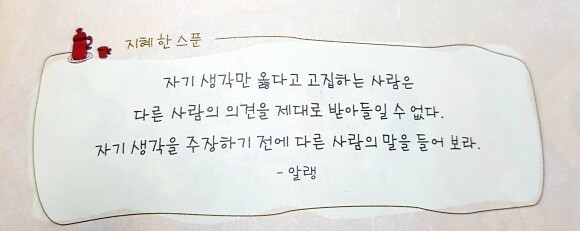 지혜 한 스푼
자기 생각만 옳다고 고집하는 사람은
다른 사람의 의견을 제대로 받아들일 수 없다.
자기 생각을 주장하기 전에 다른 사람의 말을 들어 보라.
- 알랭